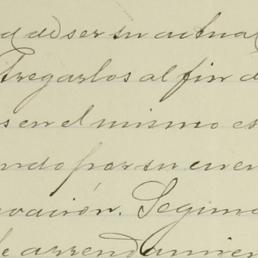 d de ser su actua
tregarlos al fin d
s en el mismo es
ndo por su cuen
vación. Segun
de arrendamien